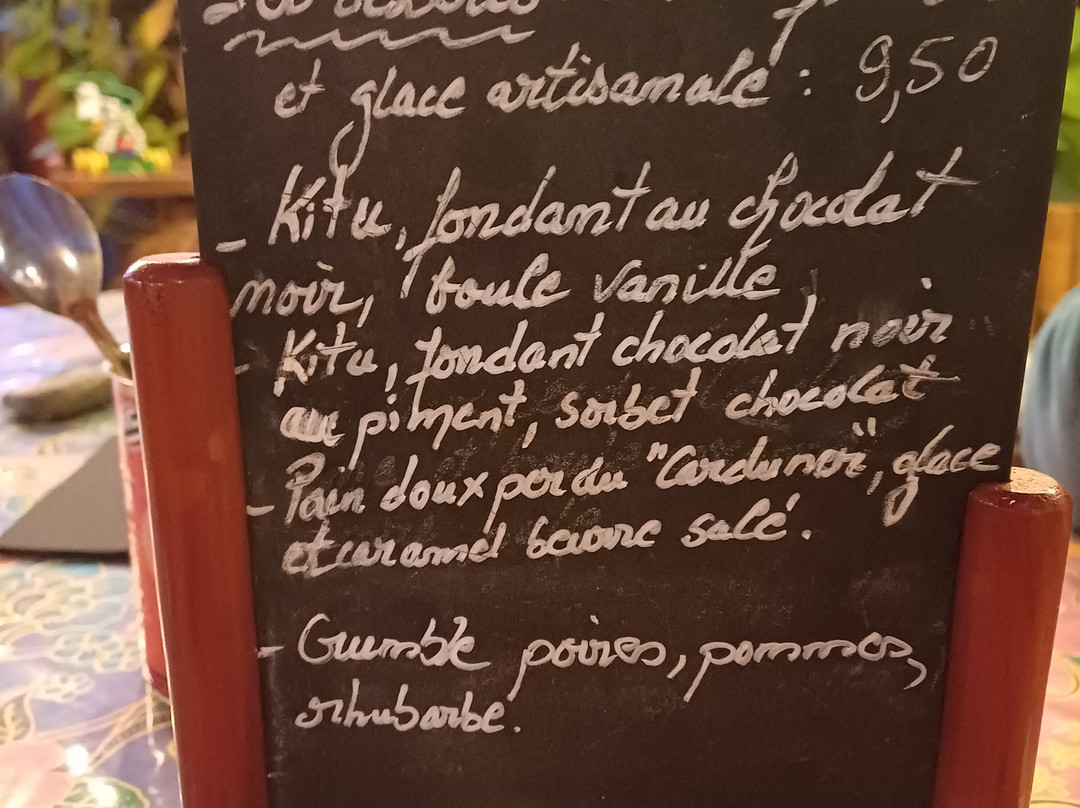 et glace artisanale : 9,50
- Kitu, fondant au chocolat
noir, boule vanille,
- Kitu, fondant chocolat noir
au piment, sorbet chocolat
- Pain doux perdu "Cardunor", glace
et caramel beurre salé.
- Crumble poires, pommes,
rhubarbe.